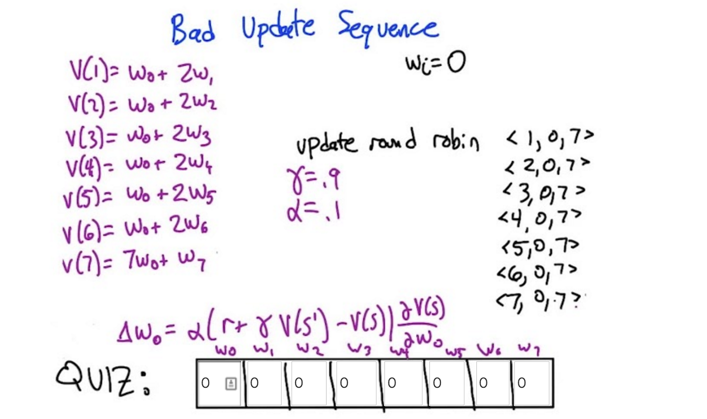 Bad Update Sequence
wi=0
V(1)= w0+ 2w1
V(2)= w0+ 2w2
V(3)= w0+ 2w3
V(4)= w0+ 2w4
V(5)= w0+2w5
V(6)= w0+ 2w6
V(7)= 7w0+ w7
update round robin
γ=.9
α=.1
<1,0,7>
<2,0,7>
<3,0,7>
<4,0,7>
<5,0,7>
<6,0,7>
<7,0,7>
Δw0= α(r+ γ V(s') -V(s)) ∂V(s)/∂w0
w0 w1 w2 w3 w4 w5 w6 w7
QUIZ: 0 0 0 0 0 0 0 0